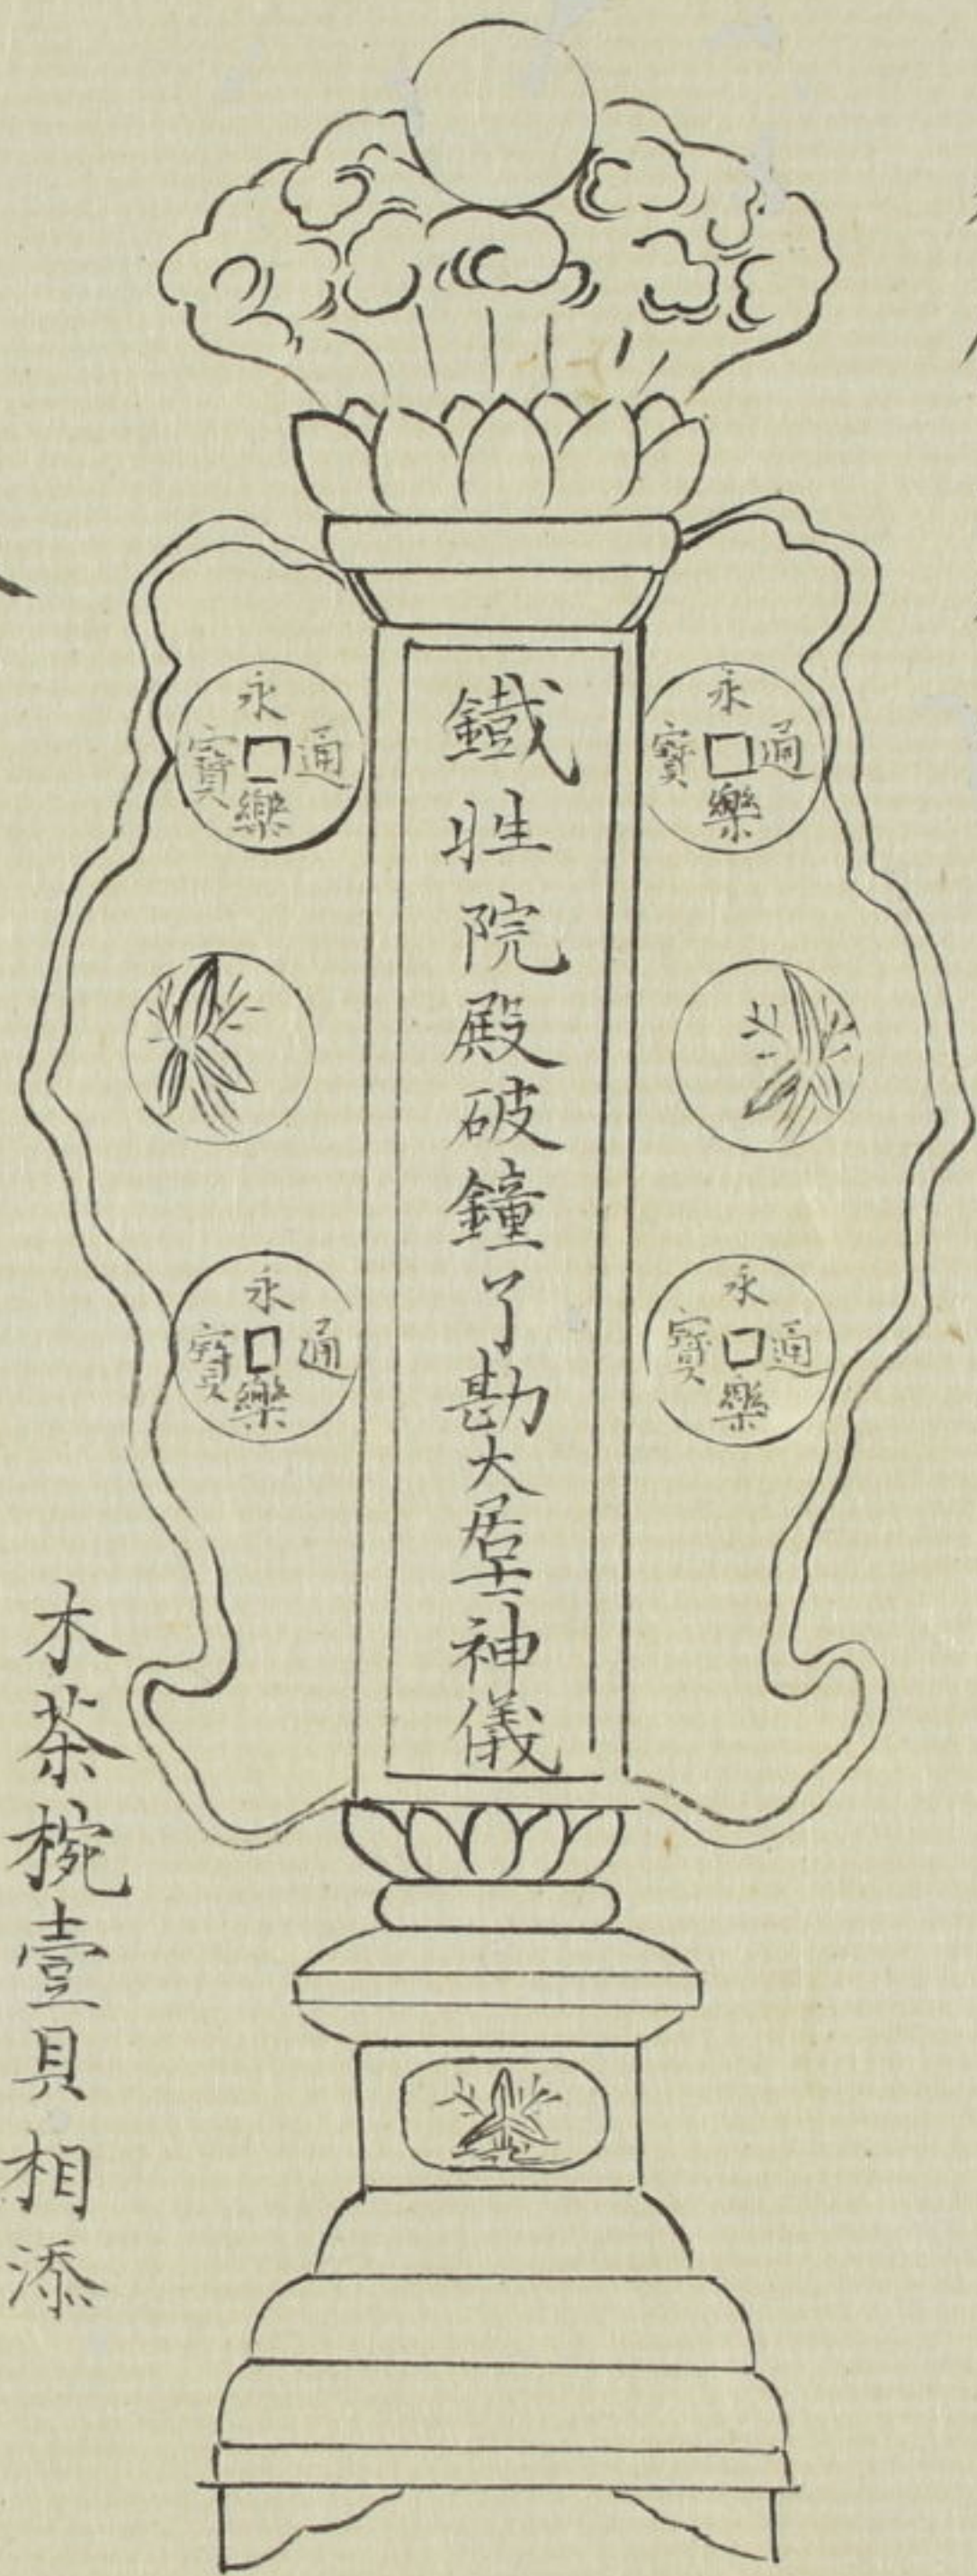 鐵胜院殿破鐘了勘大居士神儀
永樂通寶
永樂通寶
永樂通寶
永樂通寶
木茶椀壹具相添